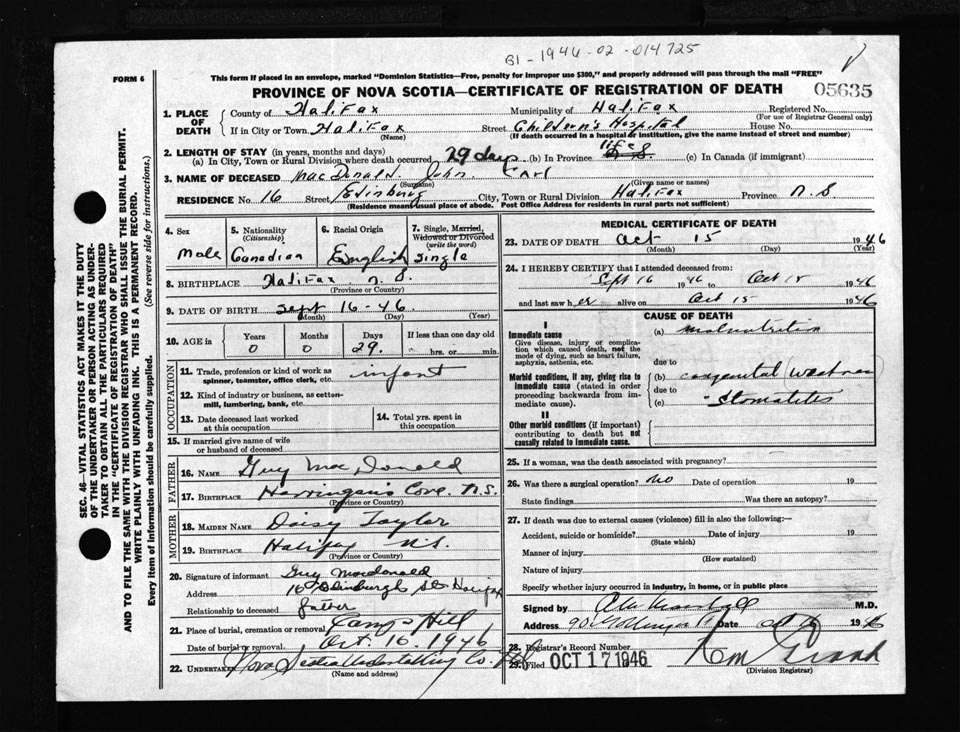 B1-1946-02-014725
FORM 6
This form if placed in an envelope, marked "Dominion Statistics—Free, penalty for improper use $300," and properly addressed will pass through the mail "FREE"
PROVINCE OF NOVA SCOTIA—CERTIFICATE OF REGISTRATION OF DEATH
05635
1. PLACE OF DEATH
County of Halifax Municipality of Halifax Registered No.
(For use of Registrar General only)
If in City or Town Halifax Street Children's Hospital House No.
(Name) (If death occurred in a hospital or institution, give the name instead of street and number)
2. LENGTH OF STAY (in years, months and days)
(a) In City, Town or Rural Division where death occurred 29 days (b) In Province life (c) In Canada (if immigrant)
3. NAME OF DECEASED MacDonald John Carl
(Surname) (Given name or names)
RESIDENCE No 16 Street Edinburg City, Town or Rural Division Halifax Province N.S
(Residence means usual place of abode. Post Office Address for residents in rural parts not sufficient)
4. Sex
Male
5. Nationality
(Citizenship)
Canadian
6. Racial Origin
English
7. Single, Married, Widowed or Divorced
(write the word)
Single
8. BIRTHPLACE Halifax N.S.
(Province or Country)
9. DATE OF BIRTH Sept 16-46
(Month) (Day) (Year)
10. AGE in
Years Months Days If less than one day old
0 0 29. hrs. or min.
OCCUPATION
11. Trade, profession or kind of work as spinner, teamster, office clerk, etc. infant
12. Kind of industry or business, as cotton-mill, lumbering, bank, etc.
13. Date deceased last worked at this occupation
14. Total yrs. spent in this occupation
15. If married give name of wife or husband of deceased
FATHER
16. NAME Guy MacDonald
17. BIRTHPLACE Harrigan's Cove. N.S.
(Province or Country)
MOTHER
18. MAIDEN NAME Daisy Taylor
19. BIRTHPLACE Halifax N.S.
(Province or Country)
20. Signature of informant Guy Macdonald
Address 16 Edinburgh St Halifax
Relationship to deceased father
21. Place of burial, cremation or removal Camp Hill
Date of burial or removal Oct. 16. 1946
22. UNDERTAKER Nova Scotia Undertaking Co.
(Name and address)
MEDICAL CERTIFICATE OF DEATH
23. DATE OF DEATH Oct 15 1946
(Month) (Day)
24. I HEREBY CERTIFY that I attended deceased from:
Sept 16 1946 Oct 15 1946
and last saw her alive on Oct 15 1946
CAUSE OF DEATH
I
Immediate cause
Give disease, injury or complication which caused death, not the mode of dying, such as heart failure, asphyxia, asthenia, etc.
(a) malnutrition
due to
Morbid conditions, if any, giving rise to immediate cause (stated in order proceeding backwards from immediate cause).
(b) congenital weakness
due to
(c) Stomatitis
II
Other morbid conditions (if important) contributing to death but not causally related to immediate cause.
25. If a woman, was the death associated with pregnancy?
26. Was there a surgical operation? No Date of operation 19
State findings Was there an autopsy?
27. If death was due to external causes (violence) fill in also the following:—
Accident, suicide or homicide? Date of injury 19
(State which)
Manner of injury
(How sustained)
Nature of injury
Specify whether injury occurred in industry, in home, or in public place
Signed by M.D.
Address 90 Date Oct 1946
28. Registrar's Record Number
29. Filed OCT 17 1946
(Division Registrar)
SEC. 46—VITAL STATISTICS ACT MAKES IT THE DUTY
OF THE UNDERTAKER OR PERSON ACTING AS UNDER-
TAKER TO OBTAIN ALL THE PARTICULARS REQUIRED
IN THE "CERTIFICATE OF REGISTRATION OF DEATH"
AND TO FILE THE SAME WITH THE DIVISION REGISTRAR WHO SHALL ISSUE THE BURIAL PERMIT.
WRITE PLAINLY WITH UNFADING INK. THIS IS A PERMANENT RECORD.
Every item of information should be carefully supplied. (See reverse side for instructions.)